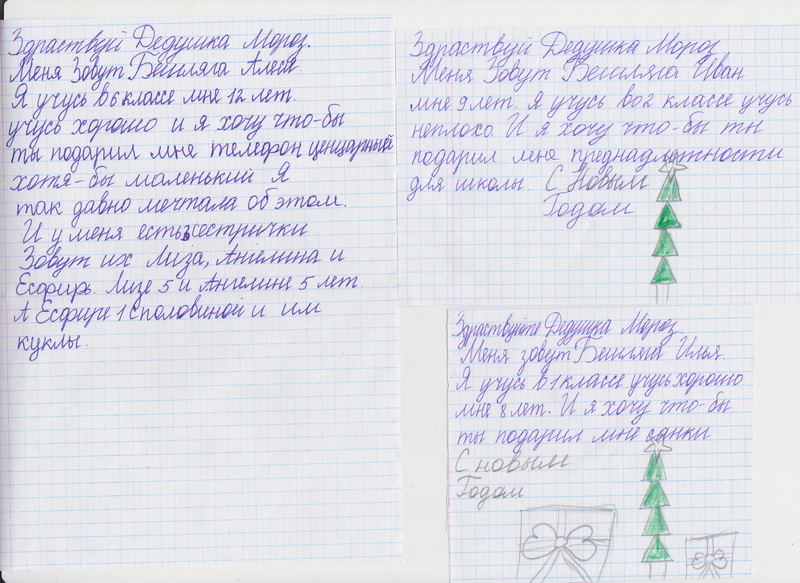 Здраствуй Дедушка Мороз.
Меня Зовут Бешляга Алеся.
Я учусь в 6 классе мне 12 лет.
учусь хорошо и я хочу что-бы
ты подарил мне телефон ценцарный
хотя-бы маленький Я
так давно мечтала об этом.
И у меня есть 3 сестрички
Зовут их Лиза, Ангелина и
Есфирь. Лизе 5 и Ангелине 5 лет.
А Есфире 1 сполвиной и им
куклы.
Здраствуй Дедушка Мороз
Меня Зовут Бешляга Иван
мне 9 лет. Я учусь во 2 классе учусь
неплохо. И я хочу что-бы ты
подарил мне преднадлжтности
для школы. С Новым
Годом
Здраствуйте Дедушка Мороз.
Меня зовут Бешляга Илья.
Я учусь в 1 классе учусь хорошо
мне 8 лет. И я хочу что-бы
ты подарил мне санки
С новым
Годом